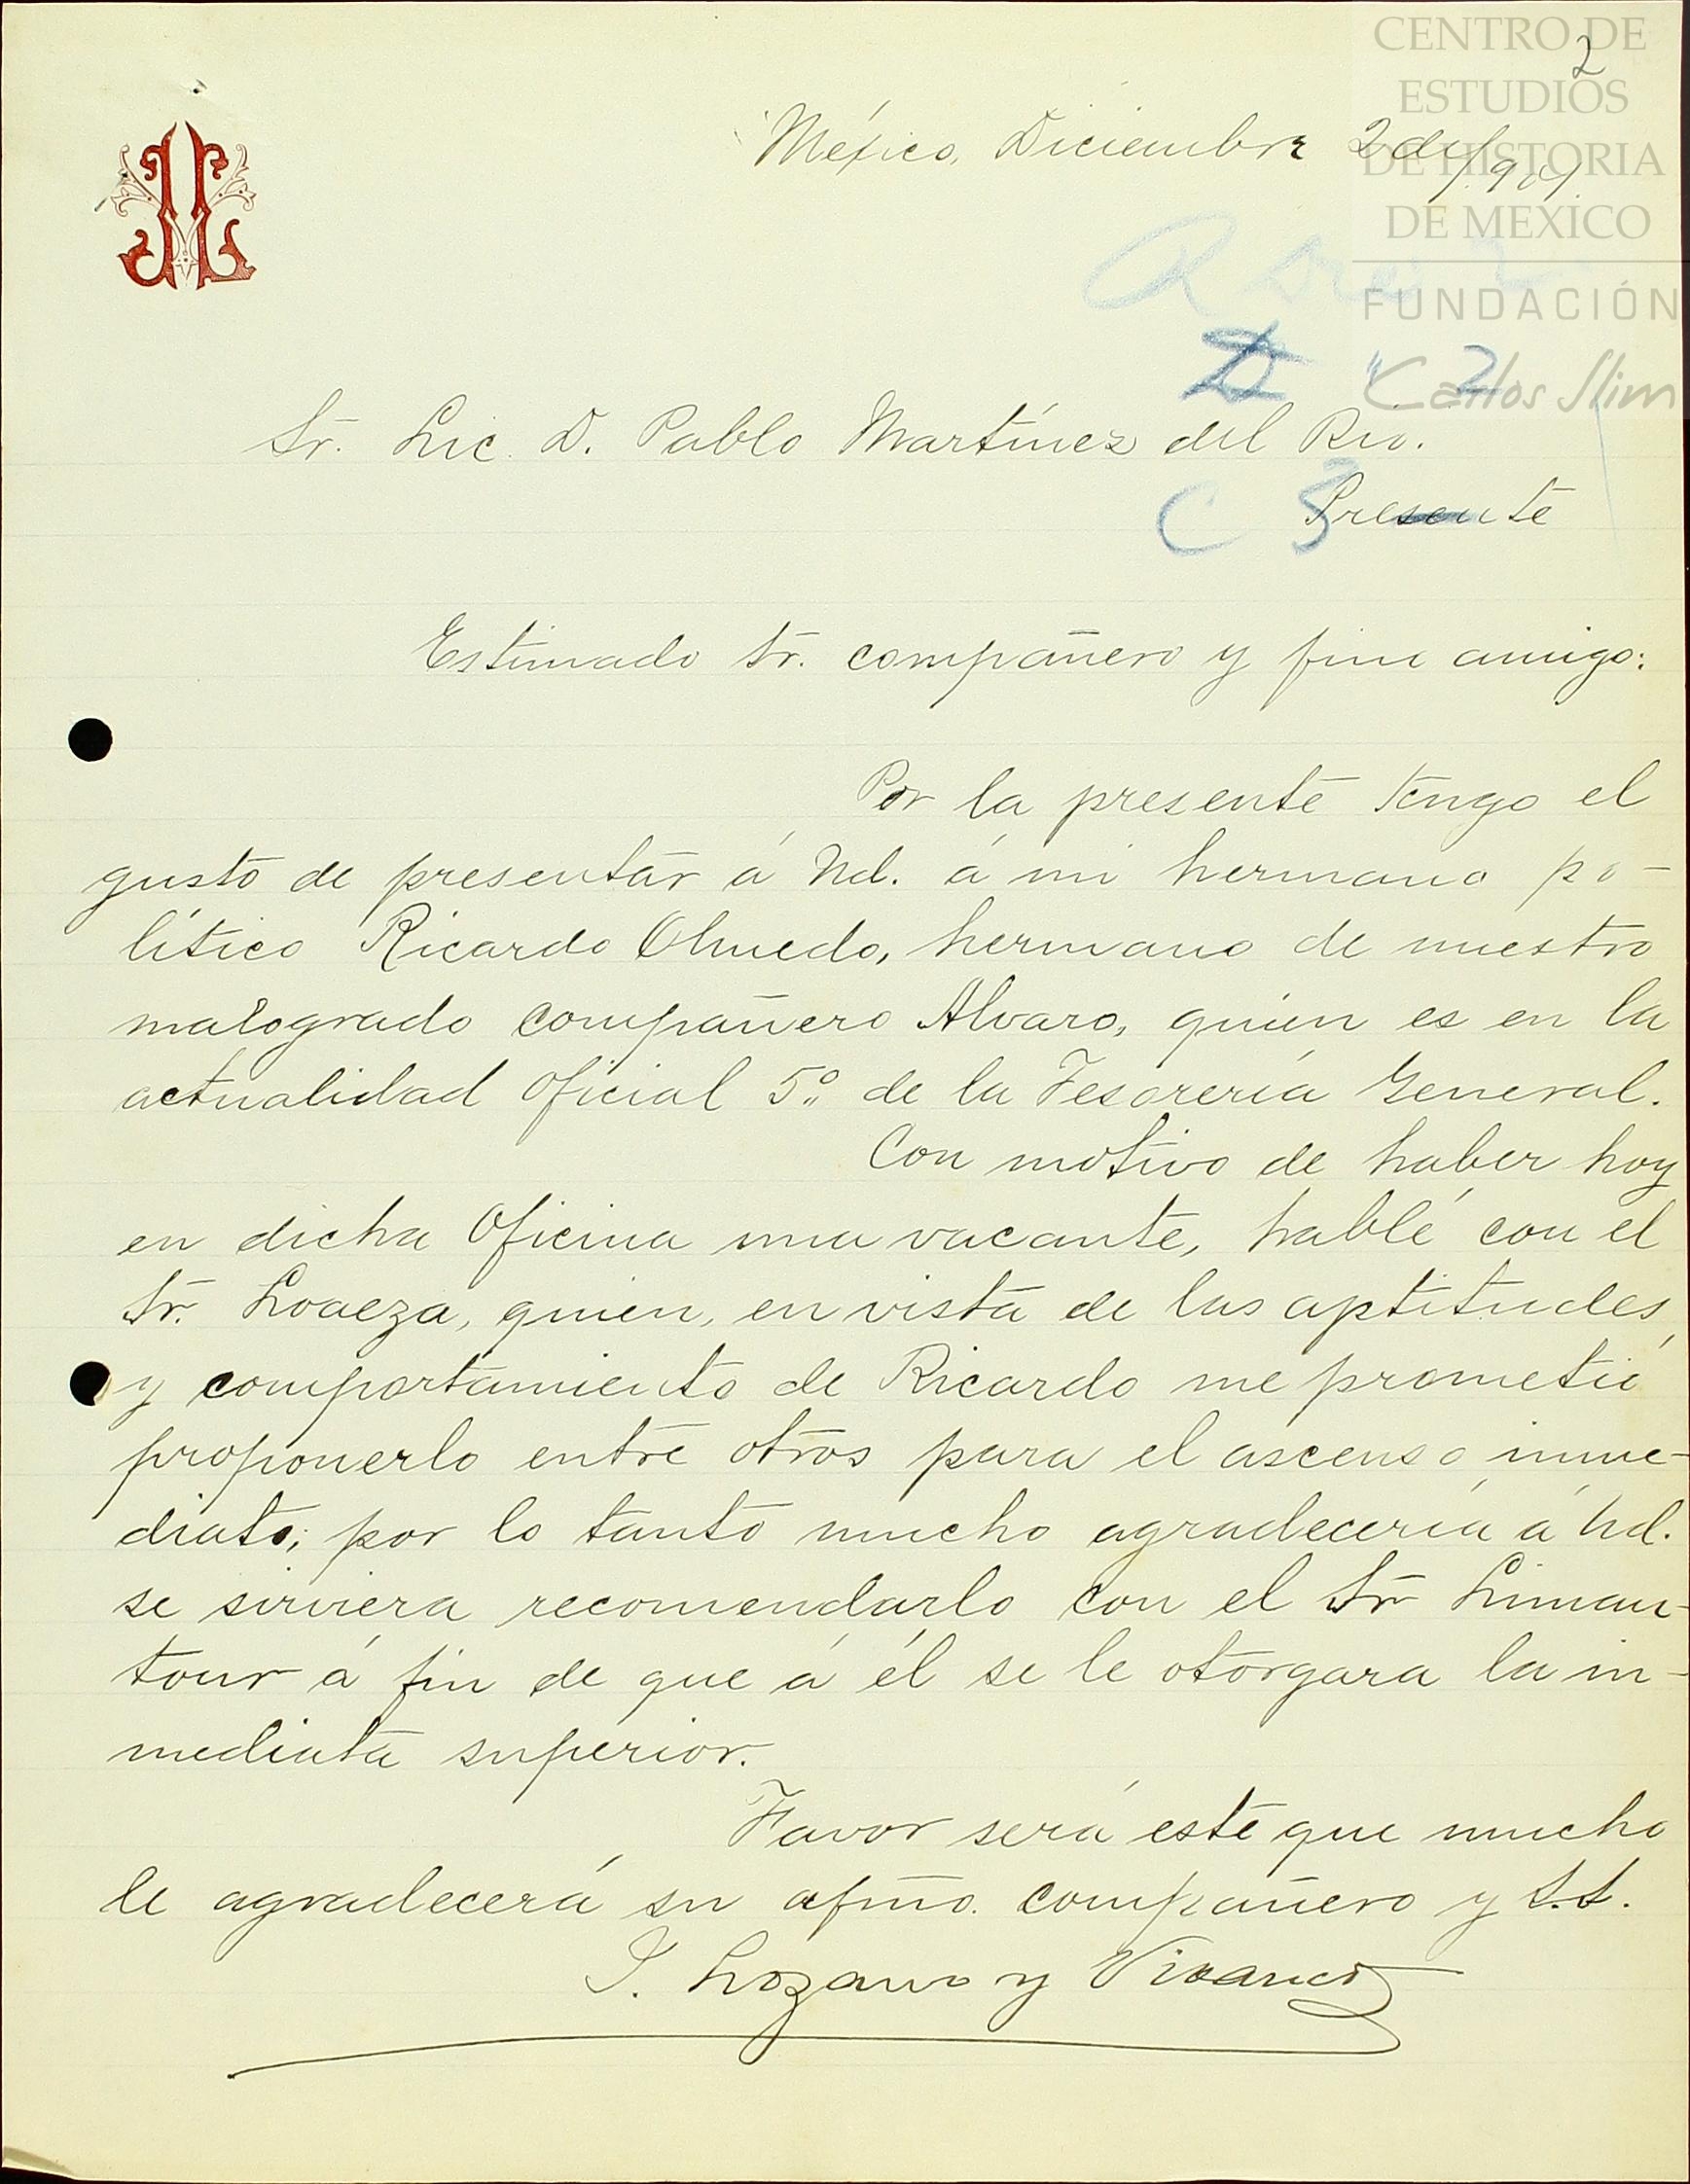 2
CENTRO DE
ESTUDIOS
DE HISTORIA
DE MEXICO
FUNDACIÓN
Carlos Slim
JL
México, Diciembre 2 de
Sr. Lic. D. Pablo Martínez del Rio.
C 3
Presente
Estimado Sr. compañero y fino amigo:
Por la presente tengo el
gusto de presentar á Ud. á mi hermano po-
lítico Ricardo Olmedo, hermano de nuestro
malogrado compañero Alvaro, quien es en la
actualidad oficial 5º de la Tesorería General.
Con motivo de haber hoy
en dicha Oficina una vacante, hablé con el
Sr. Loaeza, quien, en vista de las aptitudes
y comportamiento de Ricardo me prometió
proponerlo entre otros para el ascenso inme-
diato; por lo tanto mucho agradecería á Ud.
se sirviera recomendarlo con el Sr Liman-
tour á fin de que á él se le otorgara la in-
mediata superior.
Favor será este que mucho
le agradecerá su afmo. compañero y S.S.
J. Lozano y Vivanco